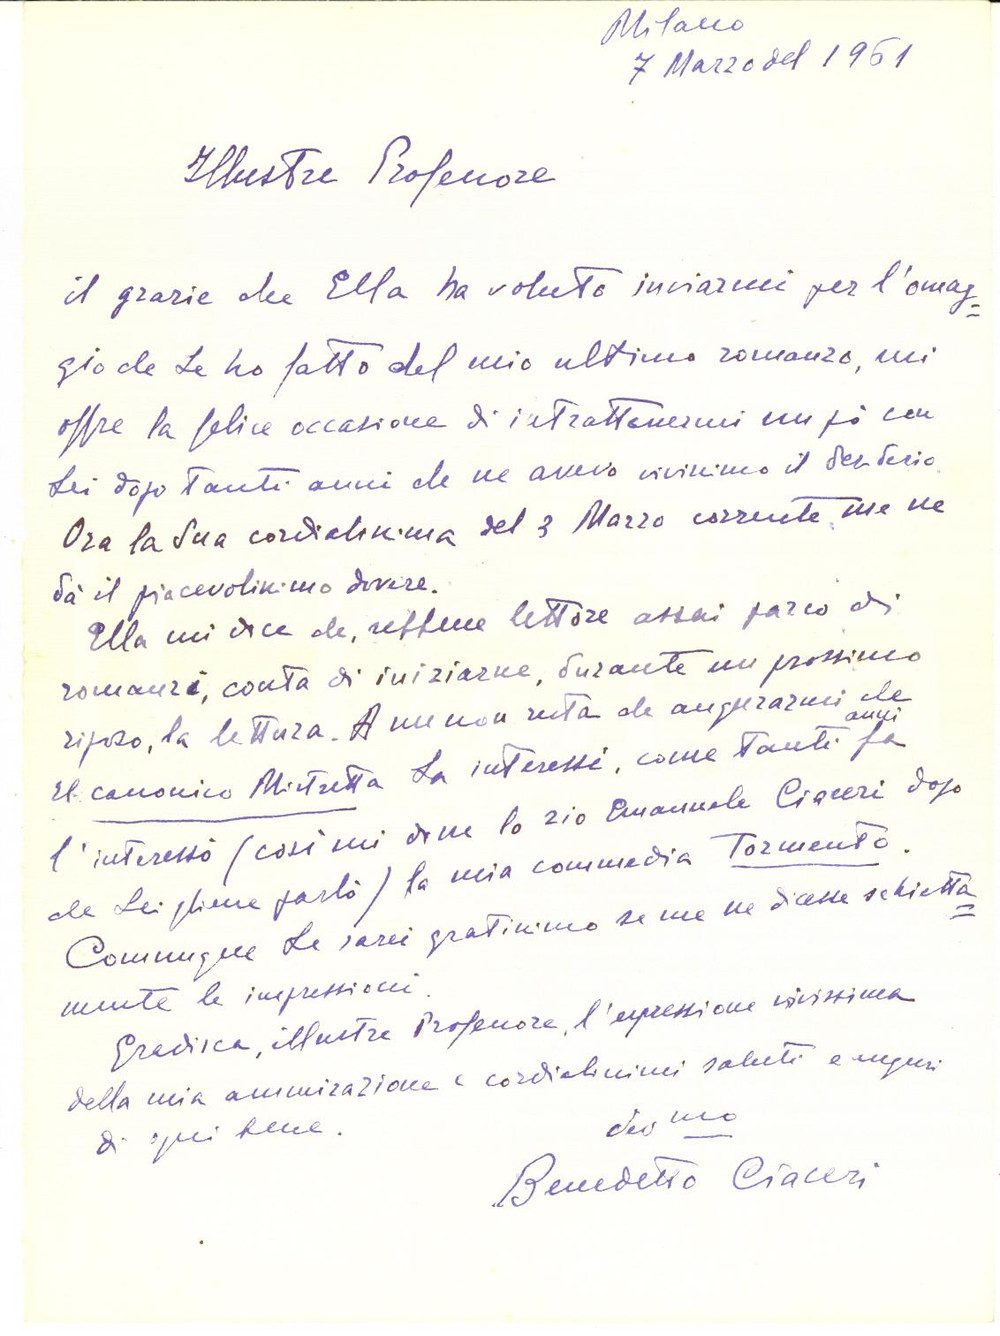 Milano
7 Marzo del 1961
Illustre Professore
il grazie che Ella ha voluto inviarmi per l'omag=
gio che Le ho fatto del mio ultimo romanzo, mi
offre la felice occasione di intrattenermi un pò con
Lei dopo tanti anni che ne avevo vivissimo il desiderio.
Ora la Sua cordialissima del 3 Marzo corrente me ne
dà il piacevolissimo dovere.
Ella mi dice che, sebbene lettore assai parco di
romanzi, conta di iniziarne, durante un prossimo
riposo, la lettura. A me non resta che augurarmi che
il canonico Mistretta La interessi, come tanti anni fa
l'interessò (così mi disse lo zio Emanuele Ciaceri dopo
che Lei gliene parlò) la mia commedia Tormento.
Comunque Le sarei gratissimo se me ne dicesse schietta=
mente le impressioni.
Gradisca, illustre Professore, l'espressione vivissima
della mia ammirazione e cordialissimi saluti e auguri
di ogni bene.
dev mo
Benedetto Ciaceri